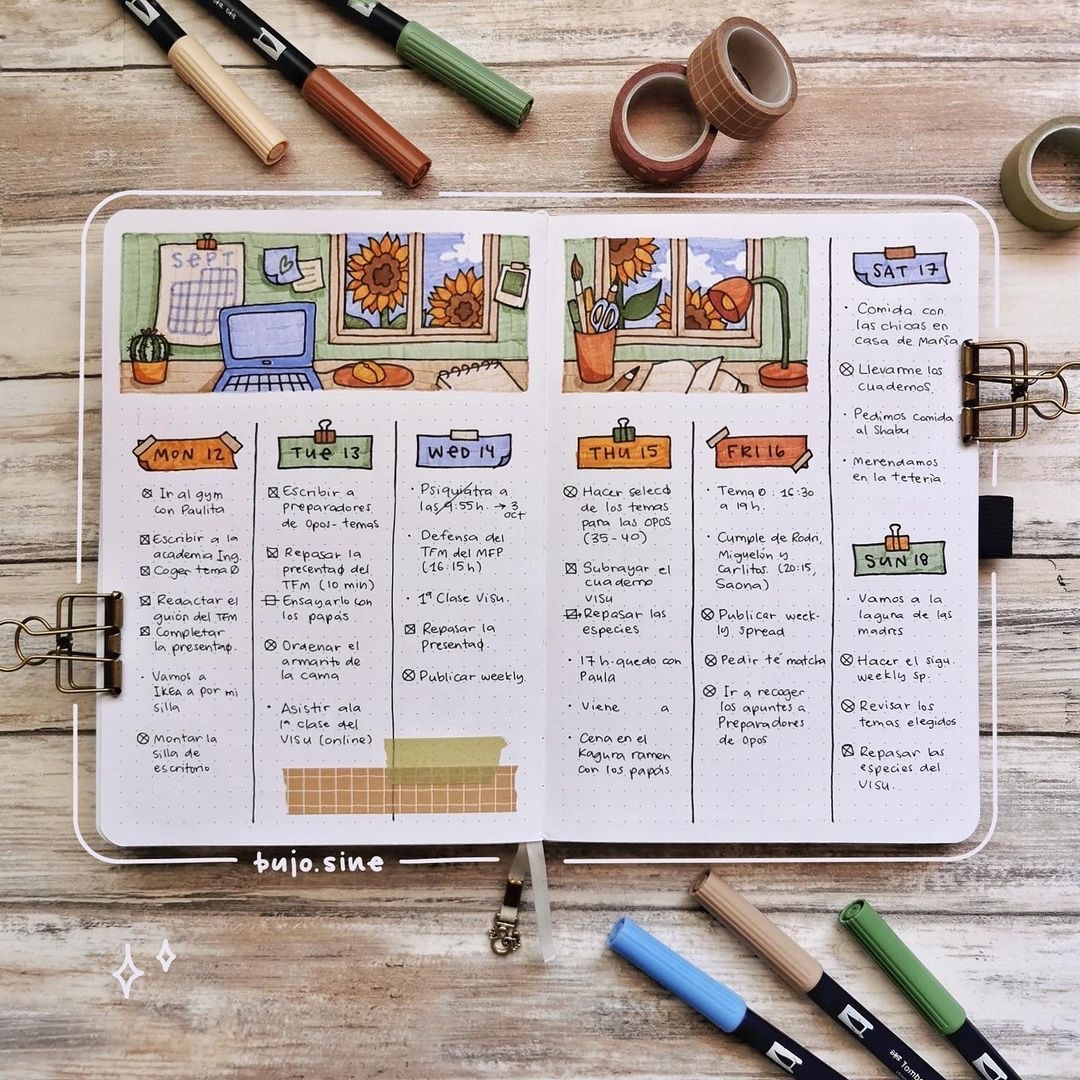 SEPT
MON 12
Ir al gym
con Paulita
Escribir a la
academia Ing.
Coger tema Ø
Redactar el
guión del TFM
Completar
la presentaø.
Vamos a
IKEA a por mi
silla
Montar la
silla de
escritorio
TUE 13
Escribir a
preparadores
de opos-temas
Repasar la
presentaø del
TFM (10 min)
Ensayarlo con
los papás
Ordenar el
armarito de
la cama
Asistir a la
1ª clase del
VISU (online)
WED 14
Psiquiatra a
las 9:55h. → 3
oct
Defensa del
TFM del MFP
(16:15h)
1ª Clase Visu.
Repasar la
Presentaø.
Publicar weekly.
THU 15
Hacer selecø
de los temas
para las OPOS
(35-40)
Subrayar el
cuaderno
VISU
Repasar las
especies
17 h. quedo con
Paula
Viene a
Cena en el
Kagura ramen
con los papás
FRI 16
Tema Ø: 16:30
a 19h.
Cumple de Rodri,
Miguelón y
Carlitos. (20:15,
Saona)
Publicar week-
ly spread
Pedir té matcha
Ir a recoger
los apuntes a
Preparadores
de opos
SAT 17
Comida con
las chicas en
casa de María
Llevarme los
cuadernos.
Pedimos comida
al Shabu
Merendamos
en la tetería
SUN 18
Vamos a la
laguna de las
madres
Hacer el sigu.
weekly sp.
Revisar los
temas elegidos
Repasar las
especies del
VISU.
bujo.sine
Tombo